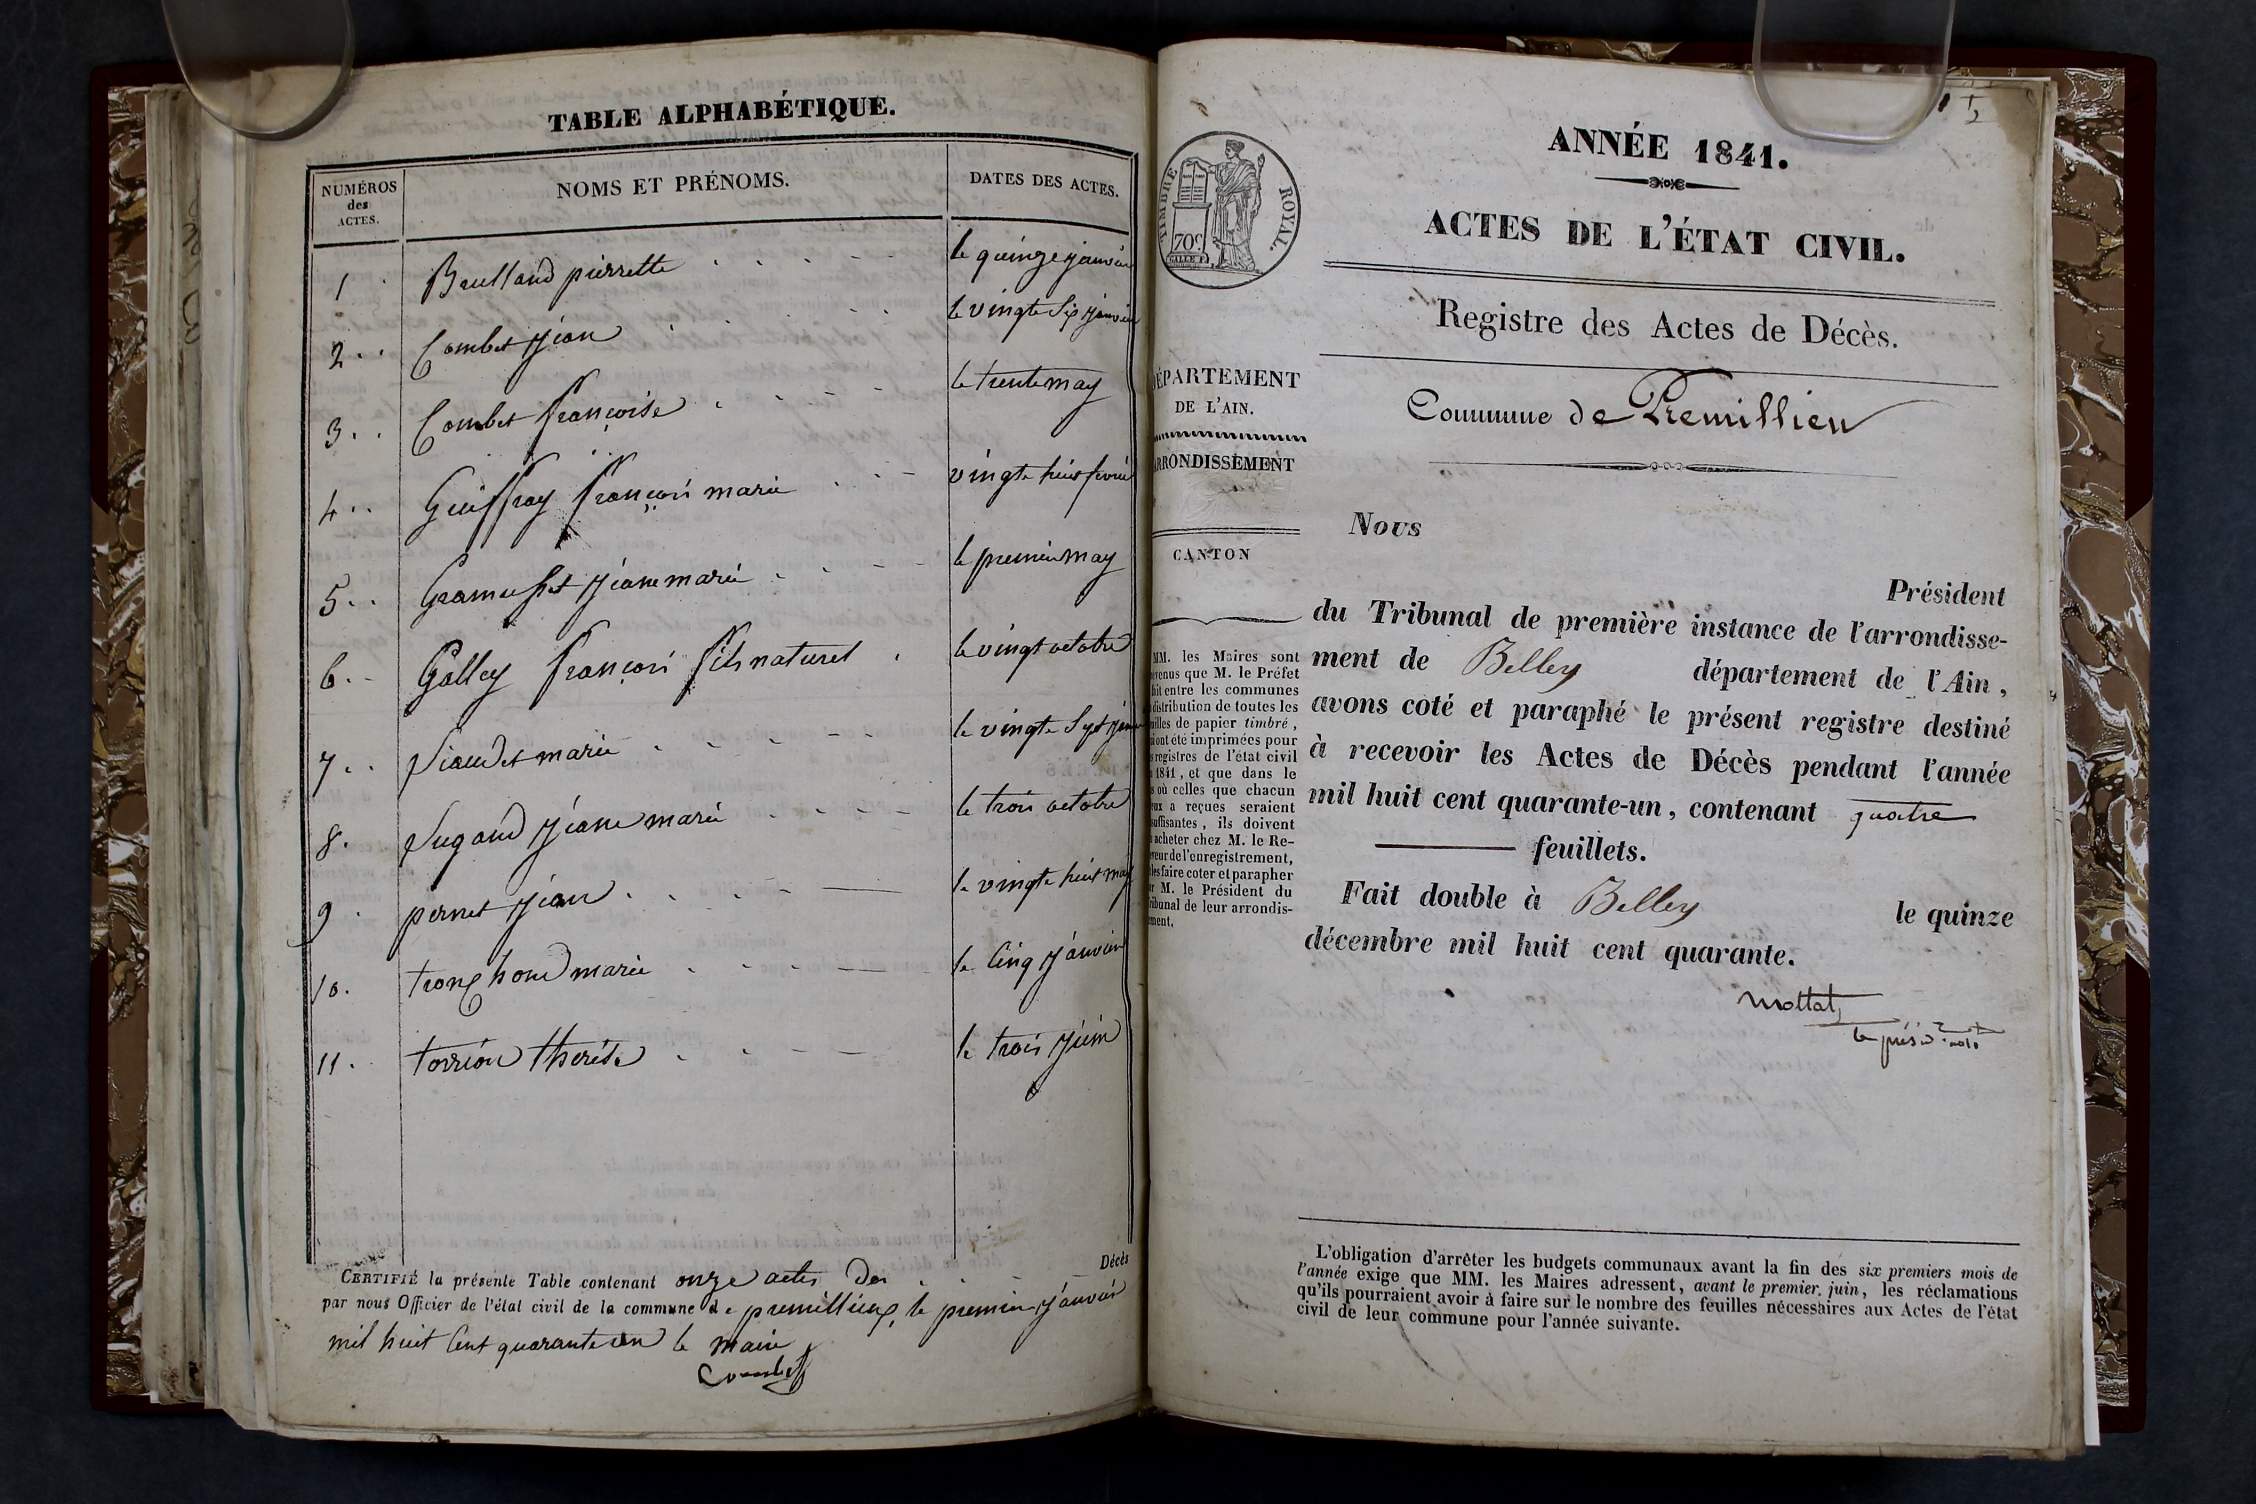 TABLE ALPHABÉTIQUE.
NUMÉROS
des
ACTES.
NOMS ET PRÉNOMS.
DATES DES ACTES.
1 Brulland pierrette le quinze janvier
2 Combet jean le vingte six janvier
3 Combet françoise le trente may
4 Guiffray françois marie vingte huit
5 jeanne marie le premier may
6 Golley françois fils naturel le vingt octobre
7 marie le vingte Sept
8 jeanne marie le trois octobre
9 pernet jean le vingte huit may
10. marie le Cinq janvier
11. torrion therèse le trois juin
CERTIFIÉ la présente Table contenant onze actes Des Décès
par nous Officier de l'état civil de la commune de le premier janvier
mil huit Cent quarante un le maire
Combet
TIMBRE ROYAL.
70c
ANNÉE 1841.
ACTES DE L'ÉTAT CIVIL.
Registre des Actes de Décès.
Commune de Premillieu
DÉPARTEMENT
DE L'AIN.
ARRONDISSEMENT
CANTON
MM. les Maires sont
que M. le Préfet
entre les communes
distribution de toutes les
de papier timbré,
ont été imprimées pour
registres de l'état civil
1841, et que dans le
où celles que chacun
a reçues seraient
, ils doivent
acheter chez M. le Re-
de l'enregistrement,
les faire coter et parapher
M. le Président du
de leur arrondis-
Nous
Président
du Tribunal de première instance de l'arrondisse-
ment de Belley département de l'Ain,
avons coté et paraphé le présent registre destiné
à recevoir les Actes de Décès pendant l'année
mil huit cent quarante-un, contenant quatre
feuillets.
Fait double à Belley le quinze
décembre mil huit cent quarante.
L'obligation d'arrêter les budgets communaux avant la fin des six premiers mois de
l'année exige que MM. les Maires adressent, avant le premier juin, les réclamations
qu'ils pourraient avoir à faire sur le nombre des feuilles nécessaires aux Actes de l'état
civil de leur commune pour l'année suivante.